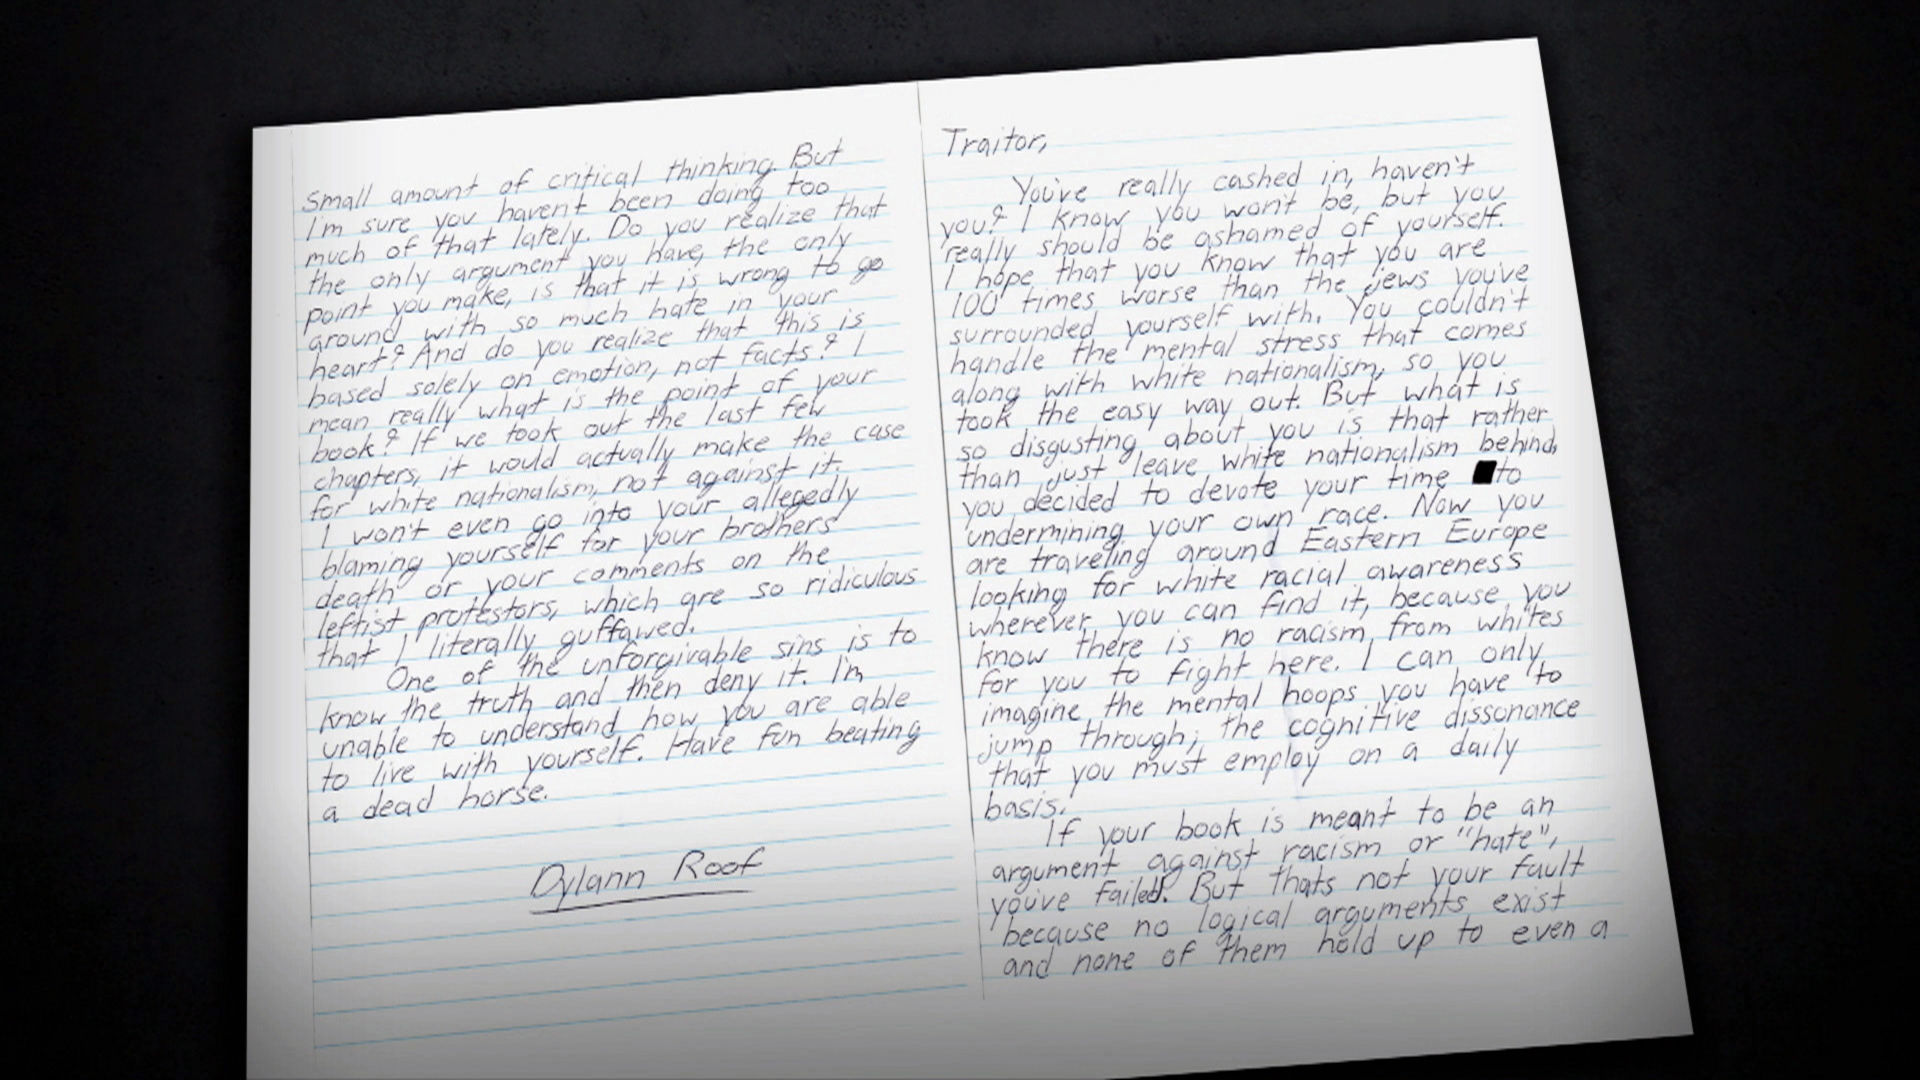 Traitor,
You've really cashed in, haven't
you? I know you won't be, but you
really should be ashamed of yourself.
I hope that you know that you are
100 times worse than the jews you've
surrounded yourself with. You couldn't
handle the mental stress that comes
along with white nationalism, so you
took the easy way out. But what is
so disgusting about you is that rather
than just leave white nationalism behind,
you decided to devote your time to
undermining your own race. Now you
are traveling around Eastern Europe
looking for white racial awareness
wherever you can find it, because you
know there is no racism from whites
for you to fight here. I can only
imagine the mental hoops you have to
jump through; the cognitive dissonance
that you must employ on a daily
basis.
If your book is meant to be an
argument against racism or "hate",
you've failed. But thats not your fault
because no logical arguments exist
and none of them hold up to even a
small amount of critical thinking. But
I'm sure you haven't been doing too
much of that lately. Do you realize that
the only argument you have, the only
point you make, is that it is wrong to go
around with so much hate in your
heart? And do you realize that this is
based solely on emotion, not facts? I
mean really what is the point of your
book? If we took out the last few
chapters, it would actually make the case
for white nationalism, not against it.
I won't even go into your allegedly
blaming yourself for your brothers
death or your comments on the
leftist protestors, which are so ridiculous
that I literally guffawed.
One of the unforgivable sins is to
know the truth and then deny it. I'm
unable to understand how you are able
to live with yourself. Have fun beating
a dead horse.
Dylann Roof